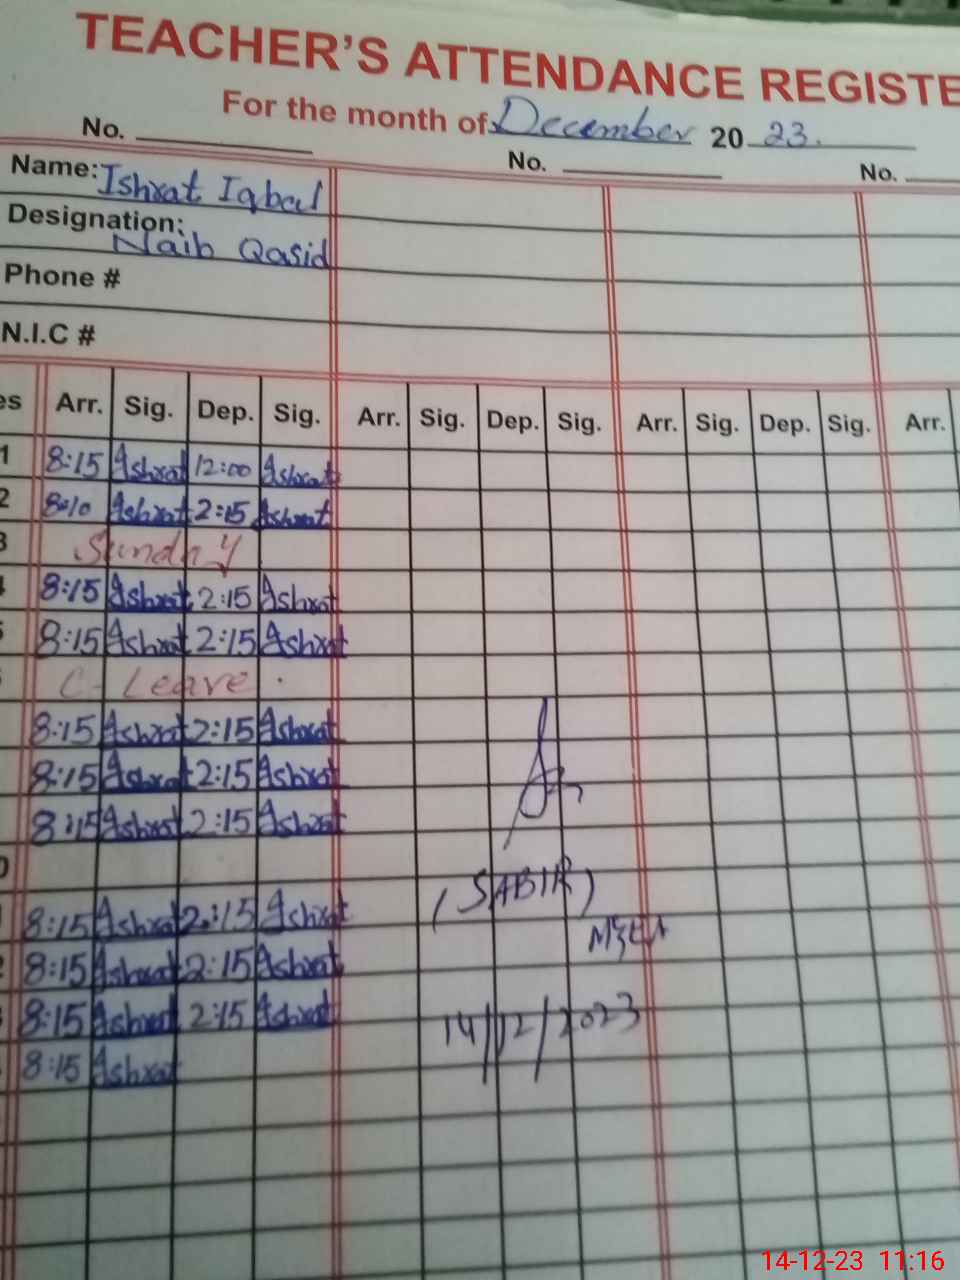 TEACHER'S ATTENDANCE REGISTE
For the month of December 20 23.
No. No. No.
Name: Ishrat Iqbal
Designation:
Naib Qasid
Phone #
N.I.C #
es Arr. Sig. Dep. Sig. Arr. Sig. Dep. Sig. Arr. Sig. Dep. Sig. Arr.
1 8:15 Ishrat 12:00 Ishrat
2 8:10 Ishrat 2:15 Ishrat
3 Sunday
8:15 Ishrat 2:15 Ishrat
8:15 Ishrat 2:15 Ishrat
C- Leave.
8:15 Ishrat 2:15 Ishrat
8:15 Ishrat 2:15 Ishrat
8:15 Ishrat 2:15 Ishrat
0
(SABIR)
8:15 Ishrat 2:15 Ishrat
8:15 Ishrat 2:15 Ishrat
8:15 Ishrat 2:15 Ishrat
14/12/2023
8:15 Ishrat
14-12-23 11:16